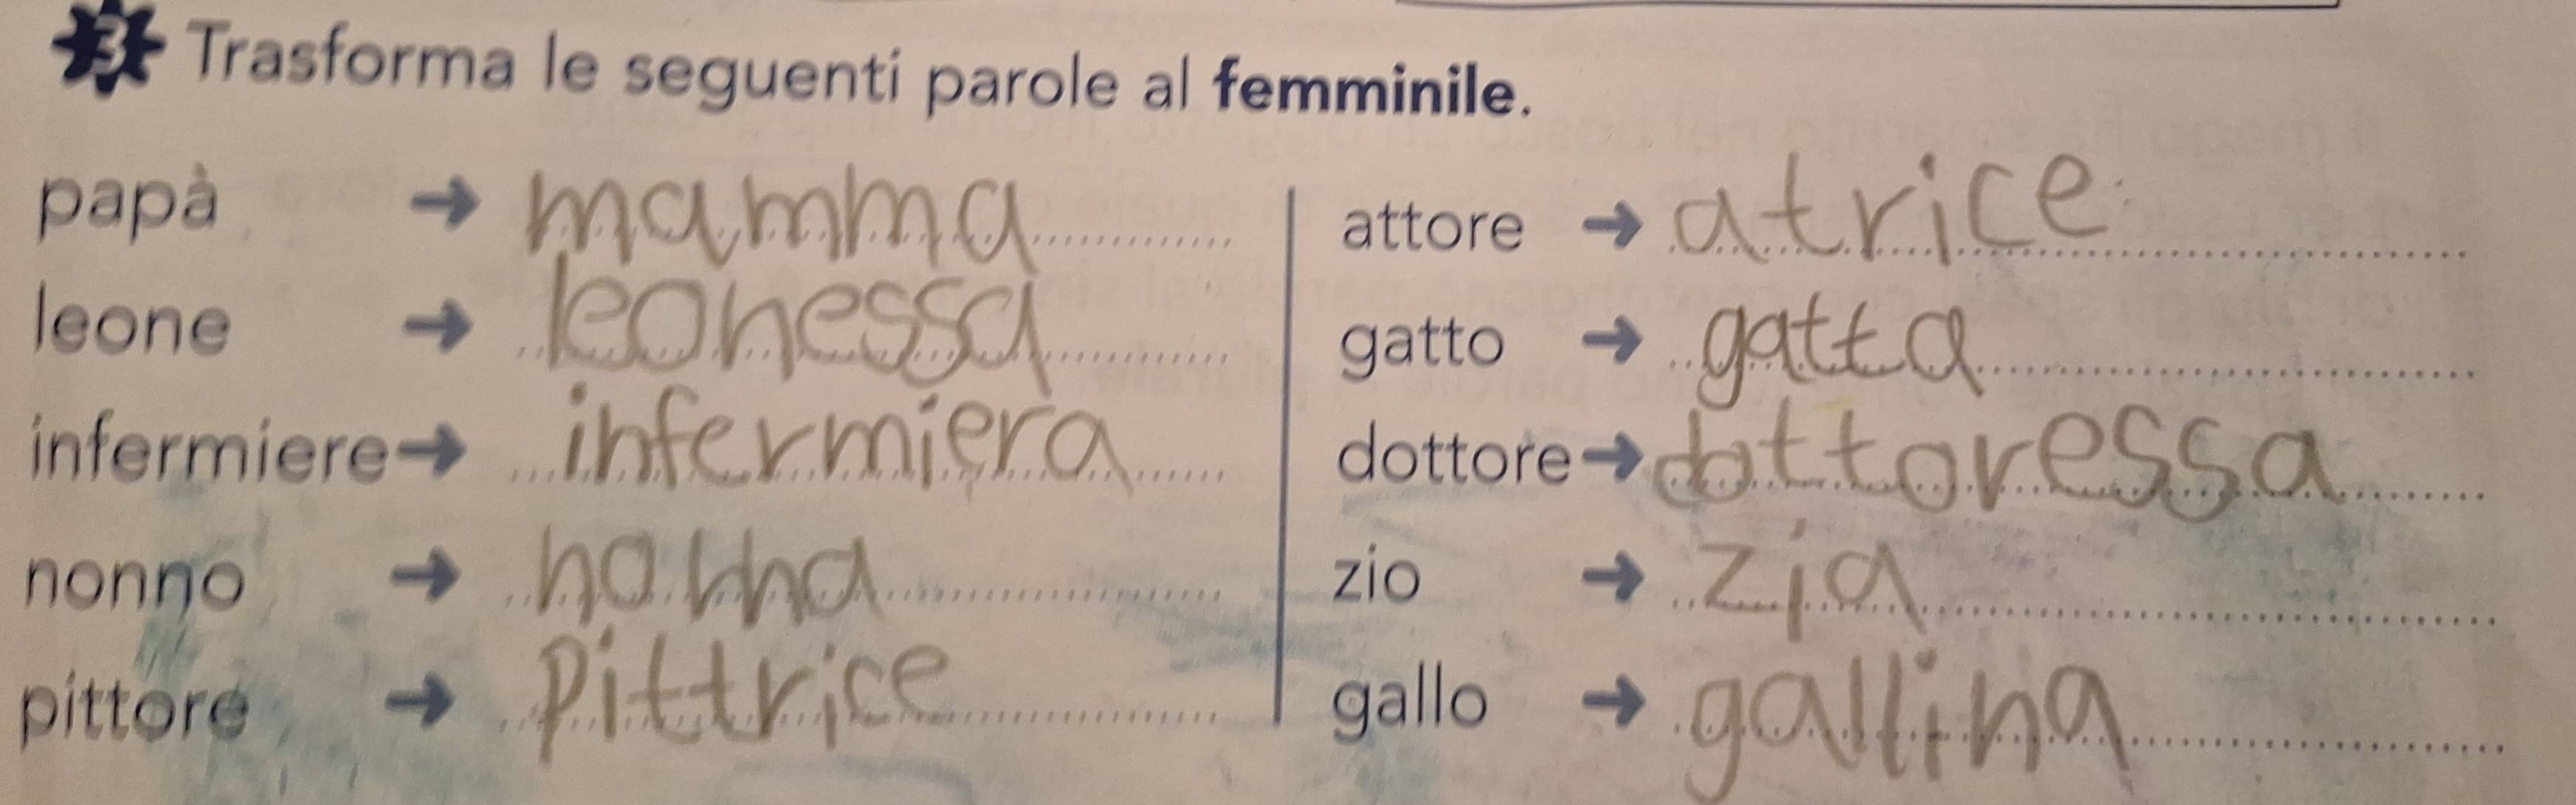 3 Trasforma le seguenti parole al femminile.
papà → mamma
leone → leonessa
infermiere → infermiera
nonno → nonna
pittore → pittrice
attore → atrice
gatto → gatta
dottore → dottoressa
zio → zia
gallo → gallina